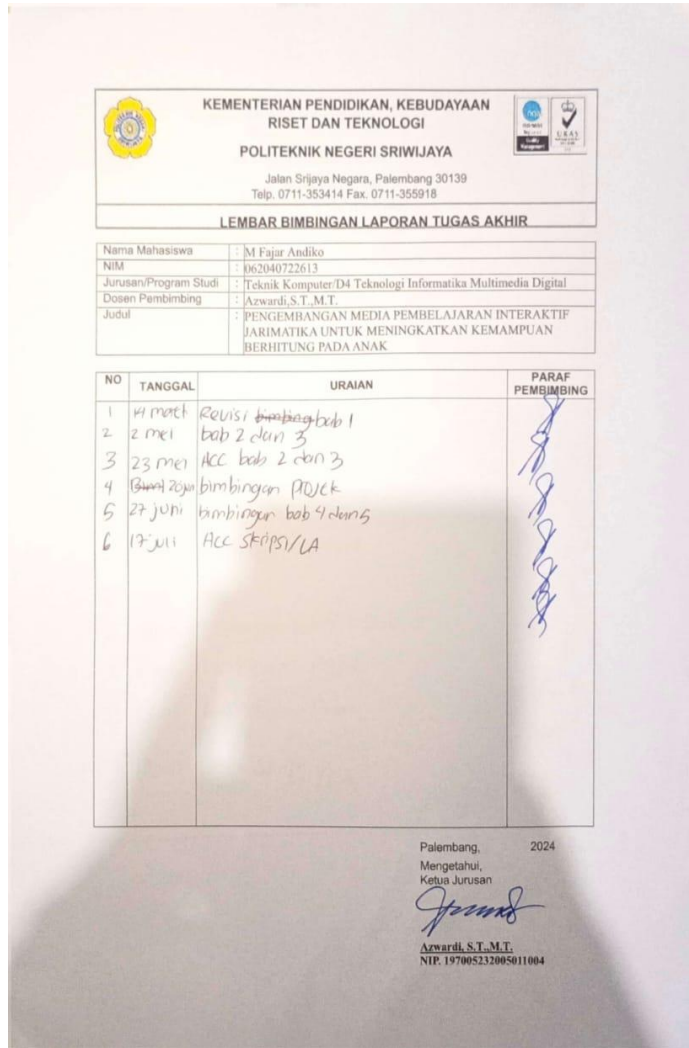 KEMENTERIAN PENDIDIKAN, KEBUDAYAAN
RISET DAN TEKNOLOGI
POLITEKNIK NEGERI SRIWIJAYA
Jalan Srijaya Negara, Palembang 30139
Telp. 0711-353414 Fax. 0711-355918
UKAS
LEMBAR BIMBINGAN LAPORAN TUGAS AKHIR
Nama Mahasiswa : M Fajar Andiko
NIM : 062040722613
Jurusan/Program Studi : Teknik Komputer/D4 Teknologi Informatika Multimedia Digital
Dosen Pembimbing : Azwardi,S.T.,M.T.
Judul : PENGEMBANGAN MEDIA PEMBELAJARAN INTERAKTIF
JARIMATIKA UNTUK MENINGKATKAN KEMAMPUAN
BERHITUNG PADA ANAK
NO TANGGAL URAIAN PARAF PEMBIMBING
1 14 maret Revisi bimbing bab 1
2 2 mei bab 2 dan 3
3 23 mei ACC bab 2 dan 3
4 20 jun bimbingan projek
5 27 juni bimbingan bab 4 dan 5
6 17 juli Acc skripsi/LA
Palembang, 2024
Mengetahui,
Ketua Jurusan
Azwardi, S.T.,M.T.
NIP. 197005232005011004